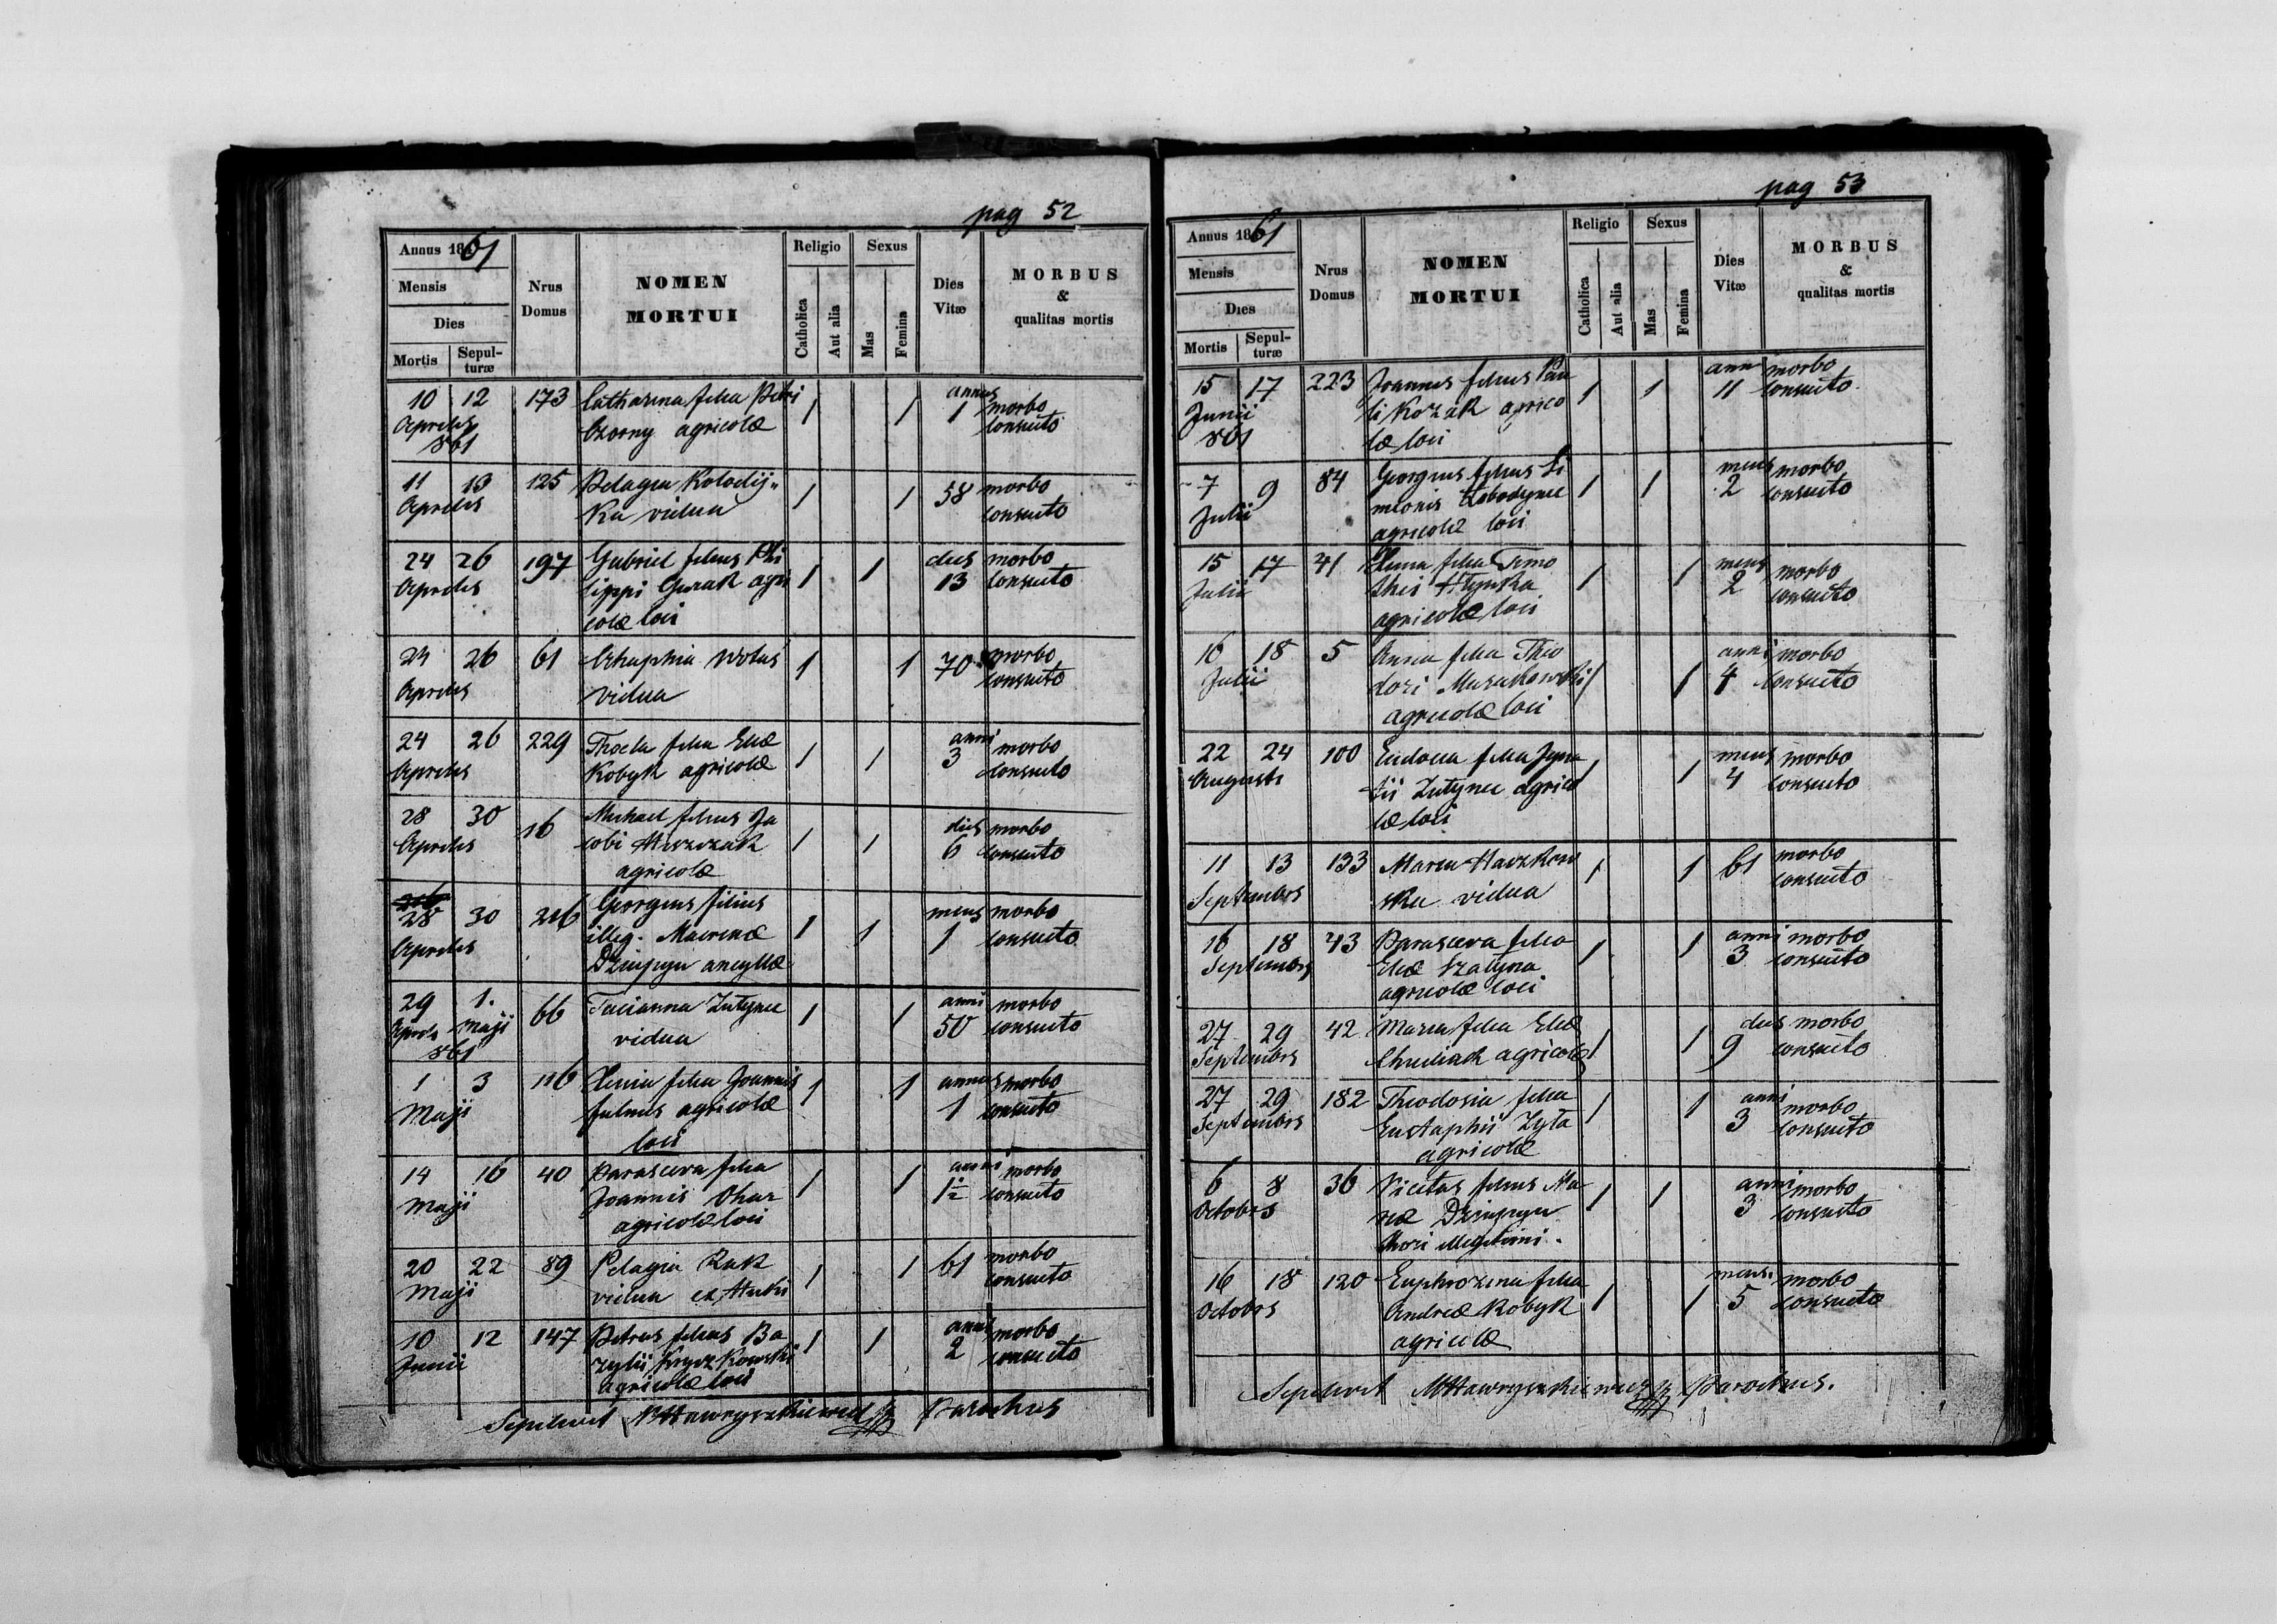 pag 52
Annus 1861
Mensis
Dies
Mortis
Sepul-
turæ
Nrus
Domus
NOMEN
MORTUI
Religio
Catholica
Aut alia
Sexus
Mas
Femina
Dies
Vitæ
MORBUS
&
qualitas mortis
10 12 173 Catharina filia Petri 1 1 annus
Aprilis Czorny agricolæ 1 morbo
861 consueto
11 13 125 Pelagia Kolodij„ 1 1 58 morbo
Aprilis ka vidua consueto
24 26 197 Gabriel filius Phi 1 1 dies morbo
Aprilis lippi agri 13 consueto
colæ loci
24 26 61 1 1 70 morbo
Aprilis vidua consueto
24 26 229 Thecla filia Eliæ 1 1 anni
Aprilis Kobyk agricolæ 3 morbo
consueto
28 30 16 Michael filius Ja 1 1 dies morbo
Aprilis cobi 6 consueto
agricolæ
28 30 216 Georgius filius 1 1 mens morbo
Aprilis illeg. 1 consueto
ancyllæ
29 1. 66 Tacianna Zutynec 1 1 anni morbo
Aprilis Maji vidua 50 consueto
861
1 3 116 Xenia filia Joannis 1 1 annus morbo
Maji agricolæ 1 consueto
loci
14 16 40 Parasceva filia 1 1 anni morbo
Maji Joannis 1½ consueto
agricolæ loci
20 22 89 Pelagia Zuk 1 1 61 morbo
Maji vidua ex consueto
10 12 147 Petrus filius Ba 1 1 anni morbo
Junii zylii 2 consueto
agricolæ loci
Sepelivit Parochus
pag 53
Annus 1861
Mensis
Dies
Mortis
Sepul-
turæ
Nrus
Domus
NOMEN
MORTUI
Religio
Catholica
Aut alia
Sexus
Mas
Femina
Dies
Vitæ
MORBUS
&
qualitas mortis
15 17 223 Joannes filius Pau 1 1 ann morbo
Junii li Kozak agrico 11 consueto
861 læ loci
7 9 84 Georgius filius Si 1 1 mens morbo
Julii meonis 2 consueto
agricolæ loci
15 17 41 Xenia filia Timo 1 1 mens morbo
Julii thei 2 consueto
agricolæ loci
16 18 5 Anna filia Theo 1 1 anni morbo
Julii dori 4 consueto
agricolæ loci
22 24 100 Eudocia filia Igna 1 1 mens morbo
Augusti tii Zutynec agrico 4 consueto
læ loci
11 13 133 1 1 61 morbo
Septembris ska vidua consueto
16 18 43 Parasceva filia 1 1 anni morbo
Septembris Eliæ 3 consueto
agricolæ loci
27 29 42 Maria filia Eliæ 1 1 dies morbo
Septembris agricolæ 9 consueto
27 29 182 Theodosia filia 1 1 anni morbo
Septembris Eustaphii Zyla 3 consueto
agricolæ
6 8 36 Nicetas filius Ma 1 1 anni morbo
Octobris riæ 3 consueto
thori illegitimi.
16 18 120 Euphrozina filia 1 1 mens. morbo
Octobris Andreæ Kobyk 5 consueto
agricolæ
Sepelivit Parochus.